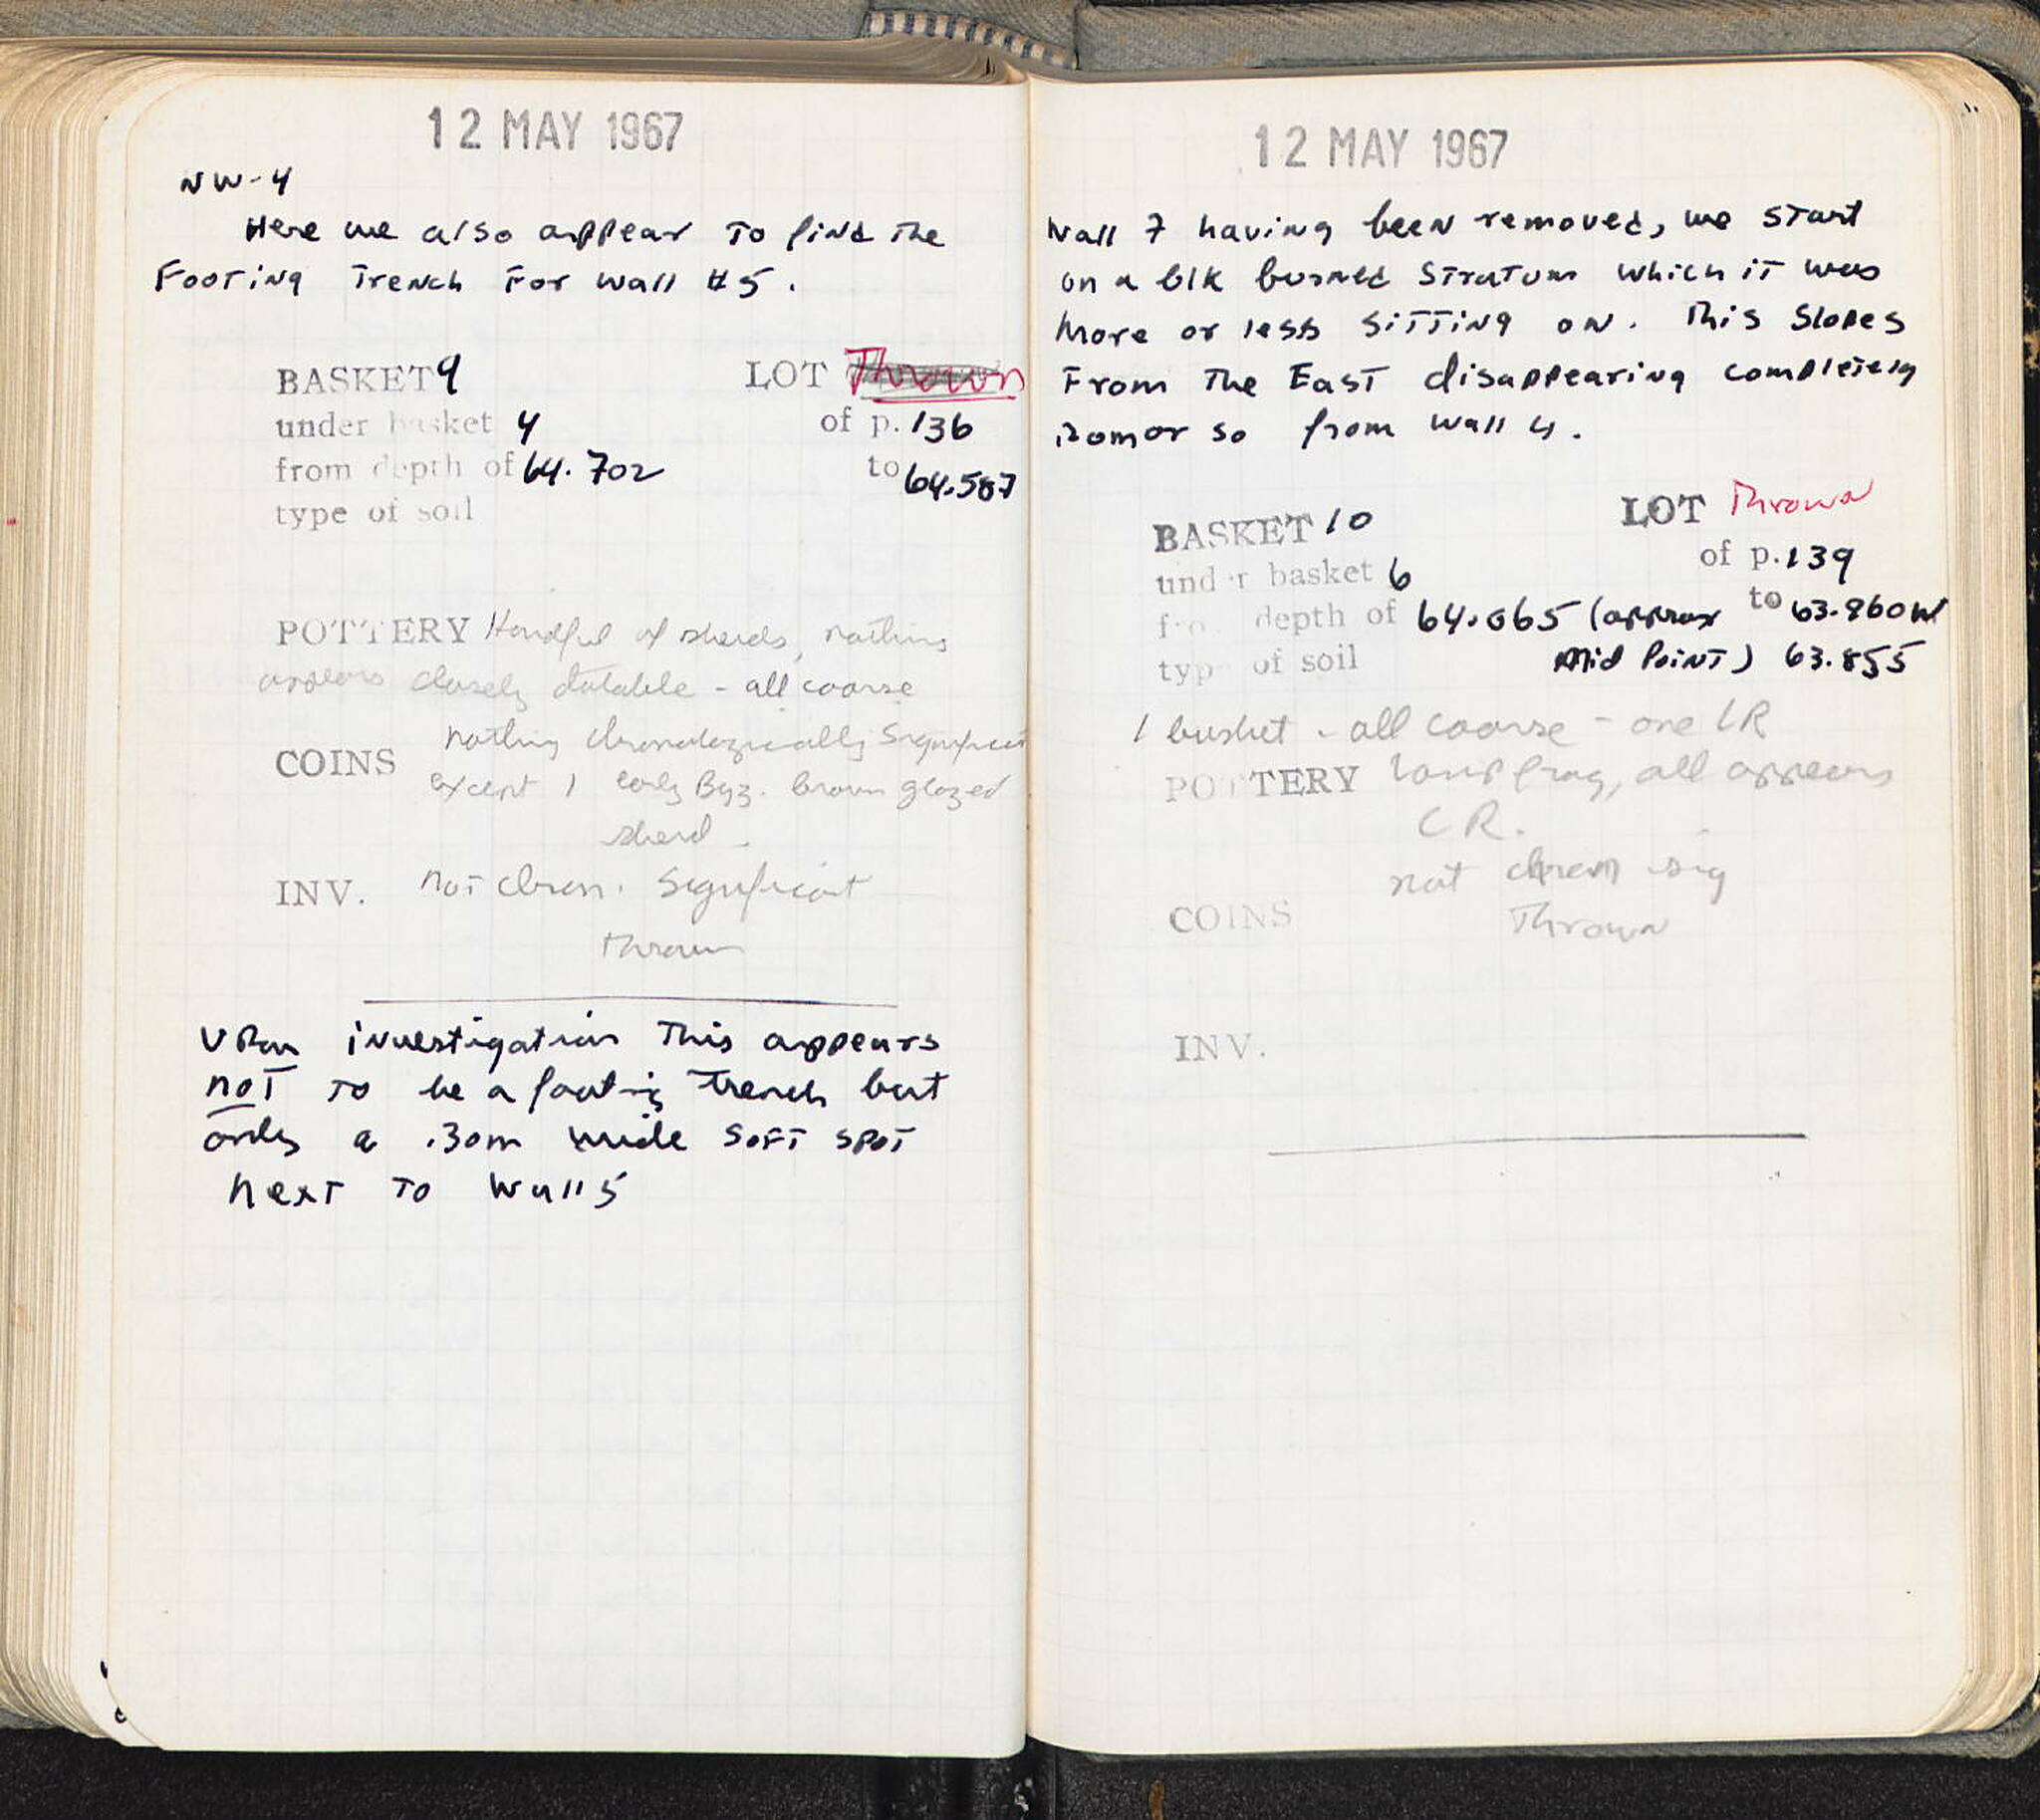 12 MAY 1967
NW-4
Here we also appear to find the
Footing Trench For wall #5.
BASKET 9 LOT Thrown
under basket 4 of p. 136
from depth of 64.702 to 64.587
type of soil
POTTERY Handful of sherds, nothing
appears closely datable - all coarse
nothing chronologically significant
COINS
except 1 early Byz. brown glazed
sherd
INV. not chron. significant
thrown
Upon investigation This appears
not to be a footing trench but
only a .30m wide soft spot
next to wall 5
12 MAY 1967
Wall 7 having been removed, we start
on a blk burned stratum which it was
more or less sitting on. This slopes
From The East disappearing completely
or so from wall 4.
BASKET 10 LOT Thrown
under basket 6 of p. 139
from depth of 64.065 (approx to 63.960 W
type of soil Mid Point) 63.855
1 basket - all coarse - one LR
POTTERY lamp frag, all appears
LR.
not chron sig
COINS Thrown
INV.